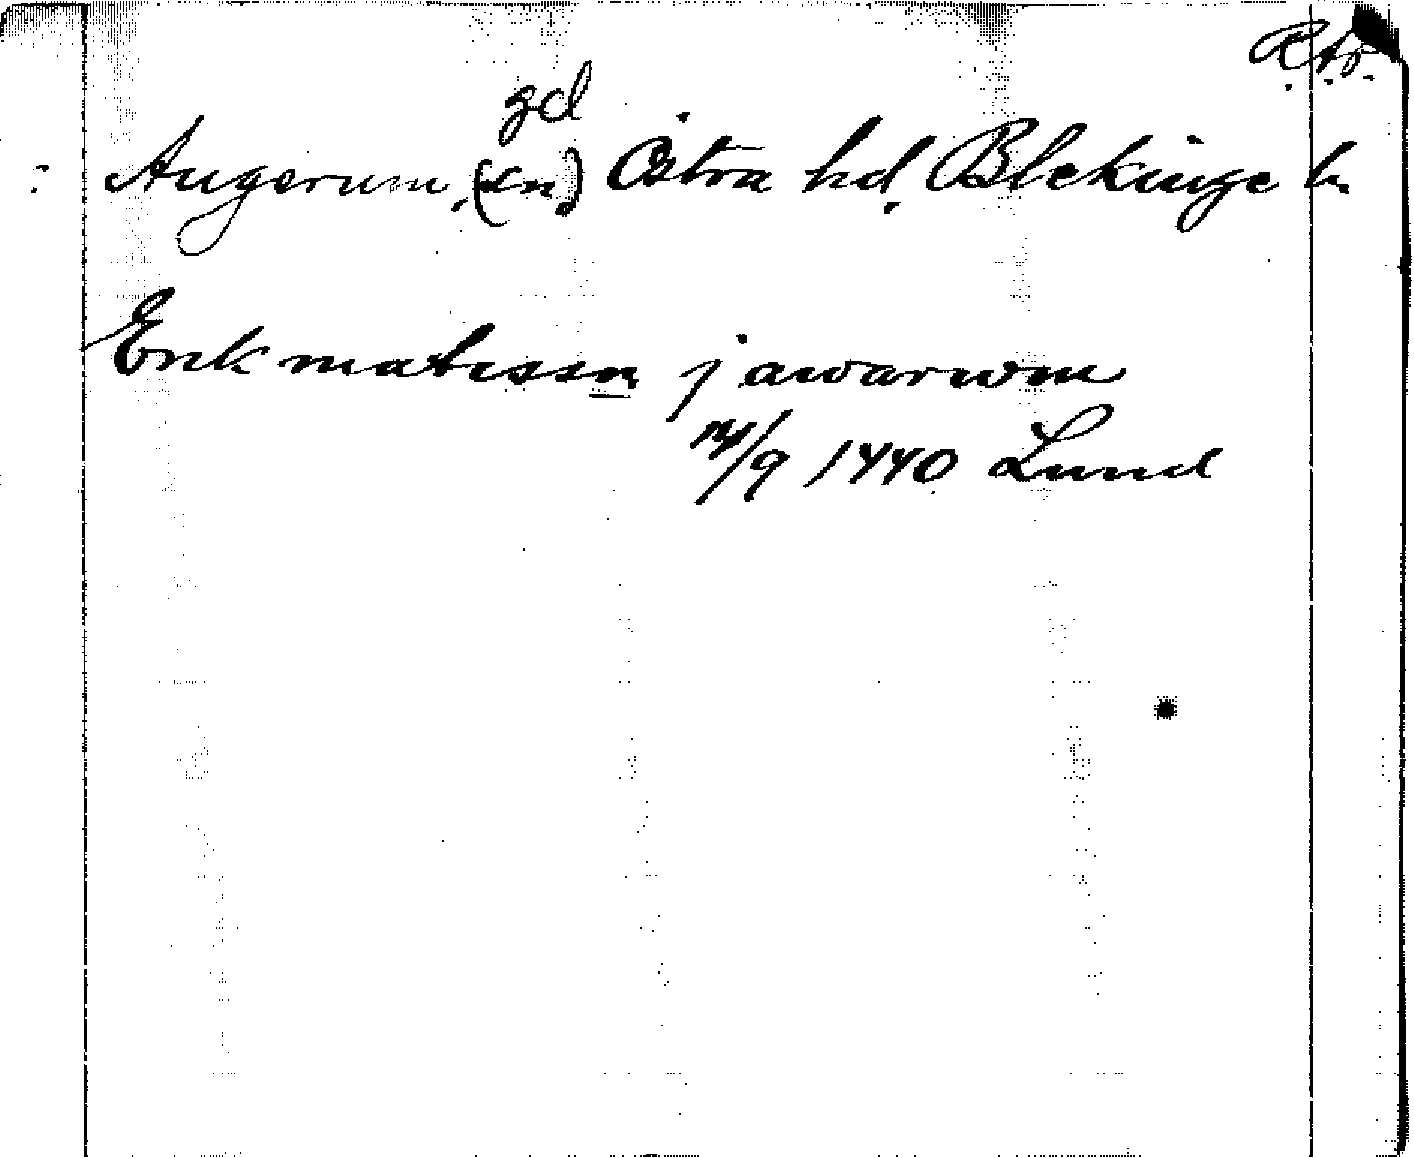 R.Ap.
gd
: Augerum, (sn.) Östra hd, Blekinge l.
Erik matissn j awarwm
14/9 1440 Lund